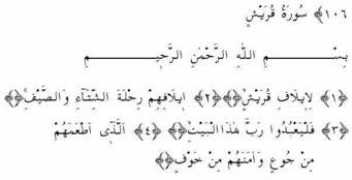 ﴿١٠٦﴾ سُورَةُ قُرَيْشٍ
بِسْــــــمِ اللهِ الرَّحْمٰنِ الرَّحِيــــــمِ
﴿١﴾ لِإِيلَافِ قُرَيْشٍ ﴿٢﴾ اِيلَافِهِمْ رِحْلَةَ الشِّتَآءِ وَالصَّيْفِ
﴿٣﴾ فَلْيَعْبُدُوا رَبَّ هٰذَا الْبَيْتِ ﴿٤﴾ اَلَّذِٓى اَطْعَمَهُمْ
مِنْ جُوعٍ وَاٰمَنَهُمْ مِنْ خَوْفٍ